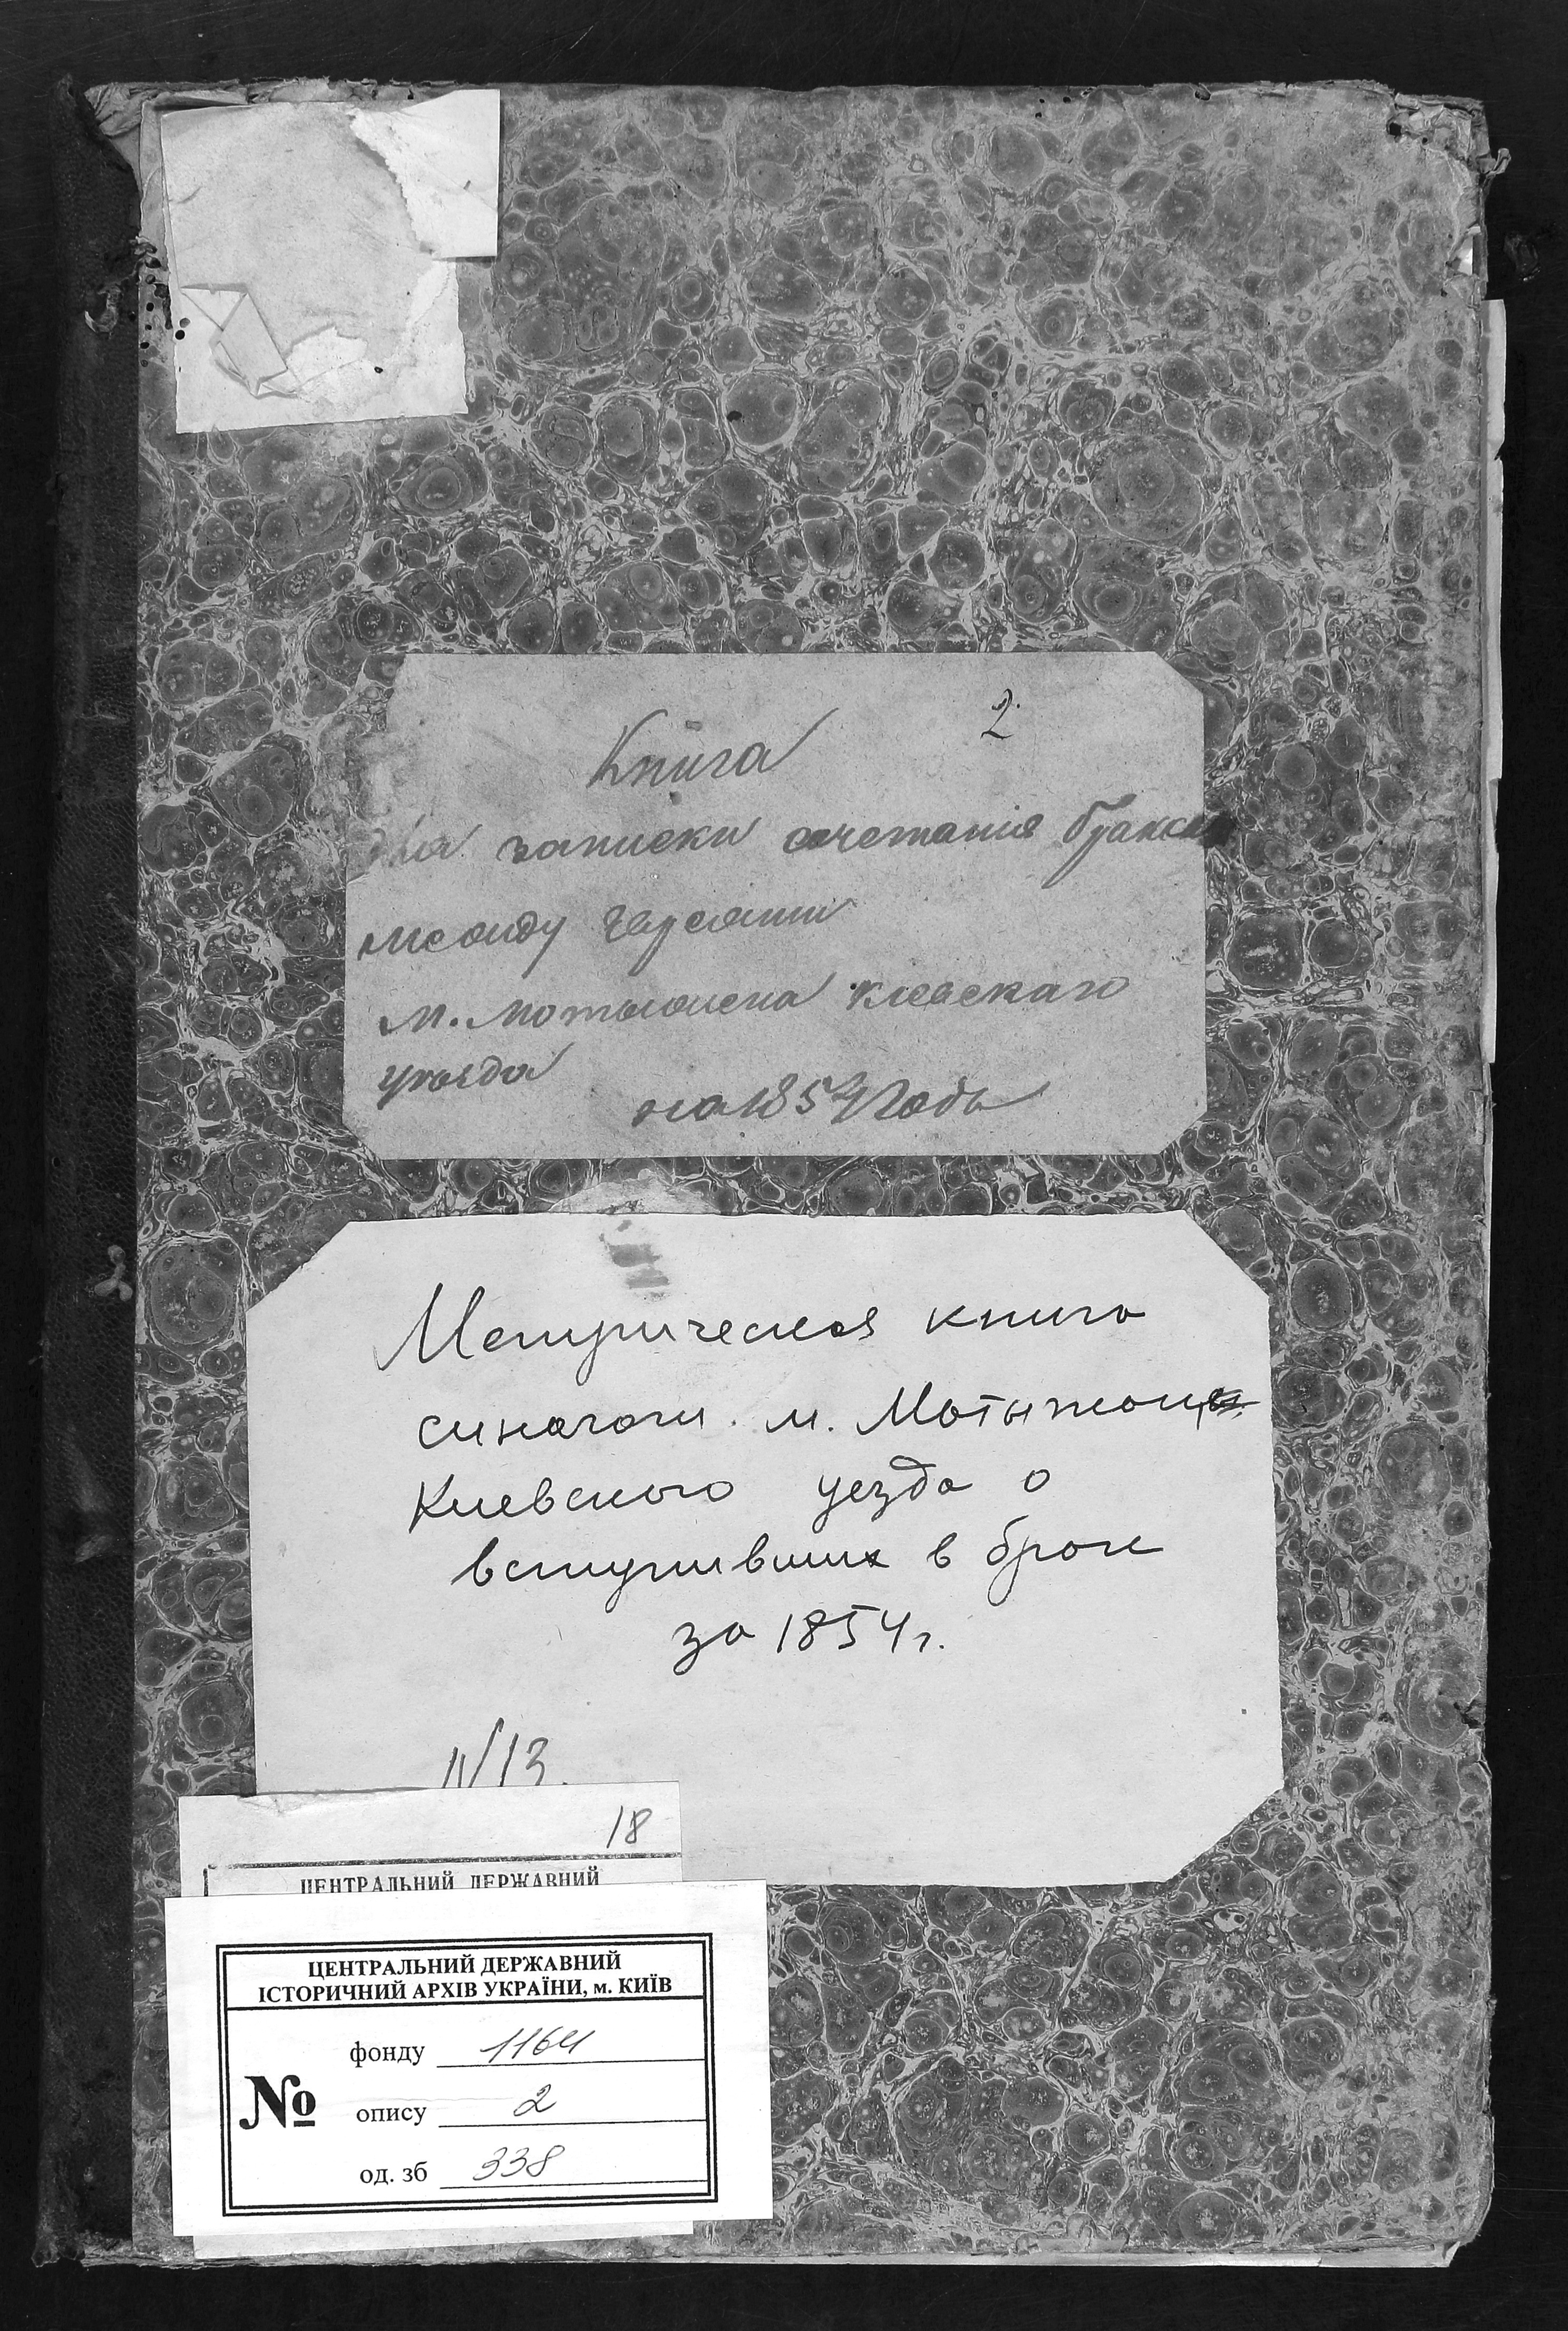 2.
Книга
для записки сочетания браков
между евреями
м. Мотыжина Киевскаго
уезда
на 1854 Годъ
Метрическая книга
синагоги м. Мотыжин
Киевского уезда о
вступивших в брак
за 1854 г.
IV/13.
18
ЦЕНТРАЛЬНИЙ ДЕРЖАВНИЙ
ЦЕНТРАЛЬНИЙ ДЕРЖАВНИЙ
ІСТОРИЧНИЙ АРХІВ УКРАЇНИ, м. КИЇВ
фонду 1164
№ опису 2
од. зб 338